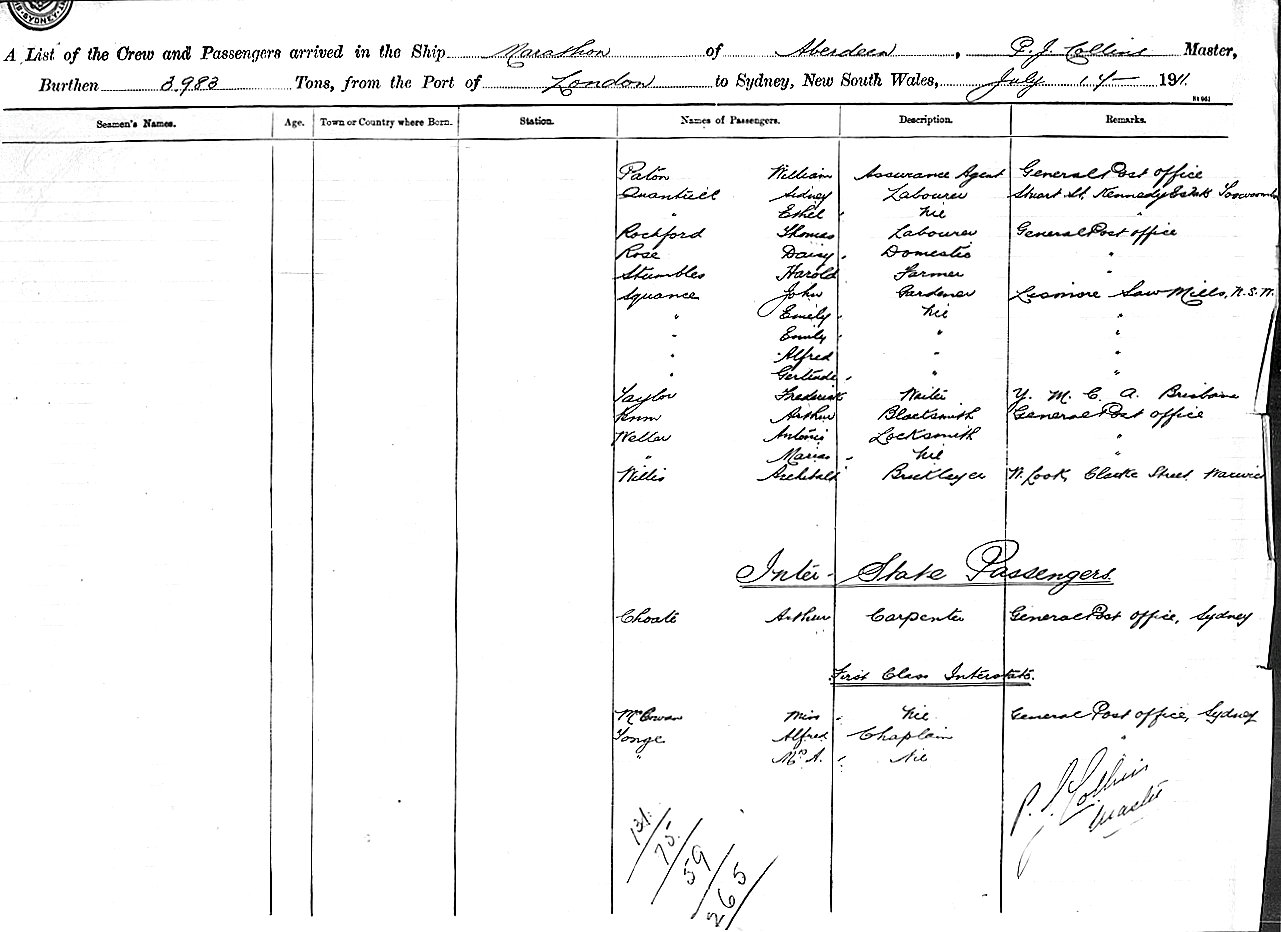 SYDNEY
A List of the Crew and Passengers arrived in the Ship Marathon of Aberdeen, P. J. Collins Master,
Burthen 3983 Tons, from the Port of London to Sydney, New South Wales, July 14 1911.
Seamen's Names. Age. Town or Country where Born. Station. Names of Passengers. Description. Remarks.
Paton William Assurance Agent General Post office
Quantrill Sidney Labourer Stuart St. Kennedy Estate Toowoomba
" Ethel Nil "
Rockford Thomas Labourer General Post office
Rose Daisy Domestic "
Stumbles Harold Farmer "
Squance John Gardener Lismore Saw Mills, N.S.W.
" Emily Nil "
" Emily " "
" Alfred " "
" Gertrude " "
Taylor Frederick Waiter Y. M. C. A. Brisbane
Arthur Blacksmith General Post office
Weller Antonio Locksmith "
" Marias Nil "
Willis Archibald Bricklayer W. Cook, Clarke Street Warwick
Inter-State Passengers.
Choate Arthur Carpenter General Post office, Sydney
First Class Interstate.
McCowan Miss Nil General Post office, Sydney
Tonge Alfred Chaplain "
" Mrs A. Nil
P. J. Collins
Master
131/
75/
59/
265/